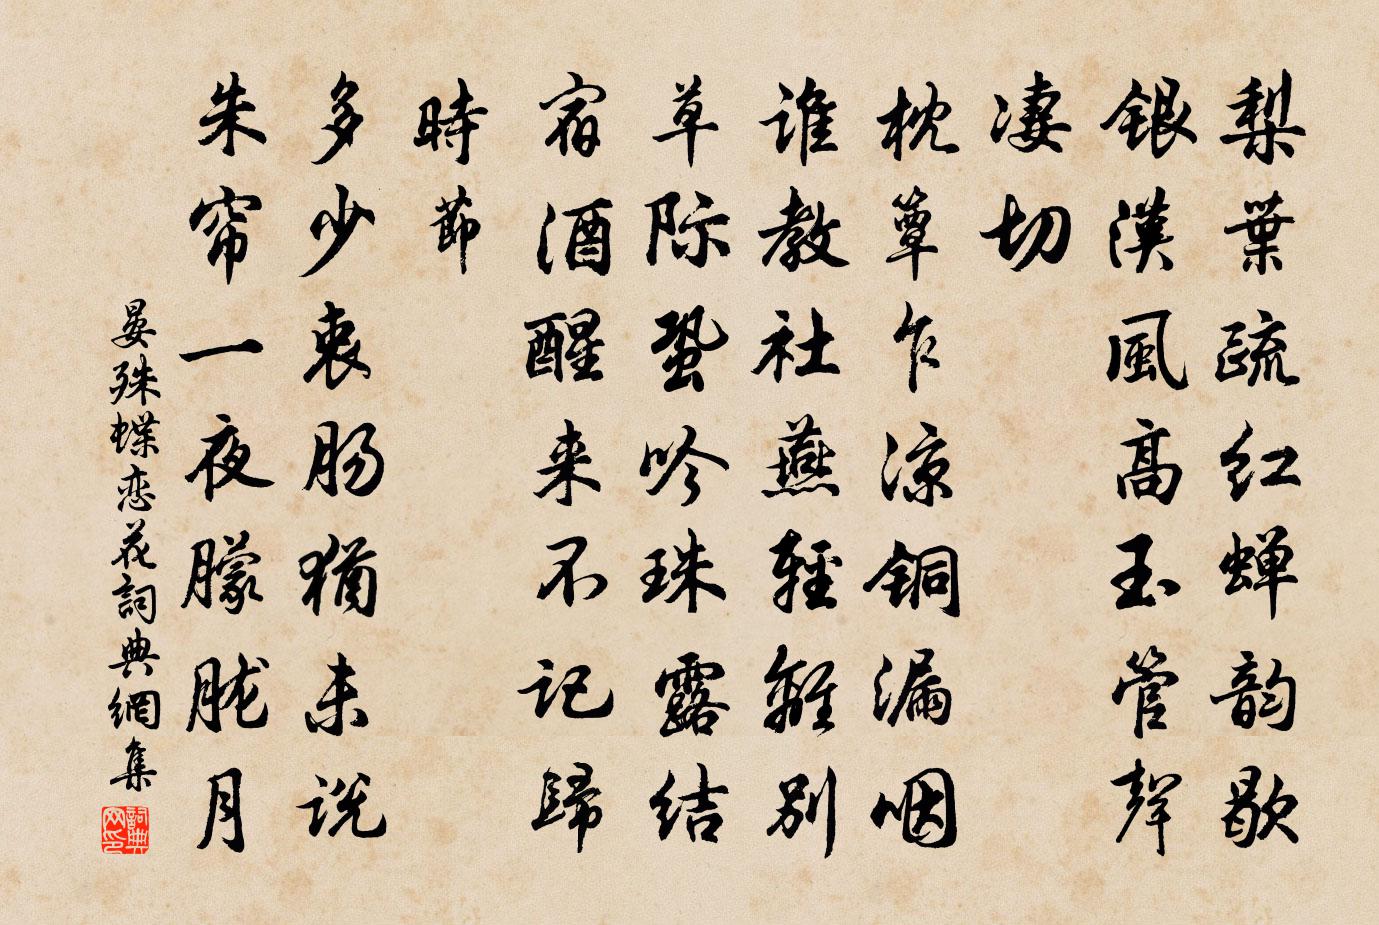 梨葉疏红蝉韵歇
銀漢風高玉管聲
凄切
枕簟乍凉铜漏咽
谁教社燕輕離别
草际蛩吟珠露结
宿酒醒来不记歸
時節
多少衷肠猶未说
朱帘一夜朦胧月
晏殊蝶恋花詞典網集
詞典网印